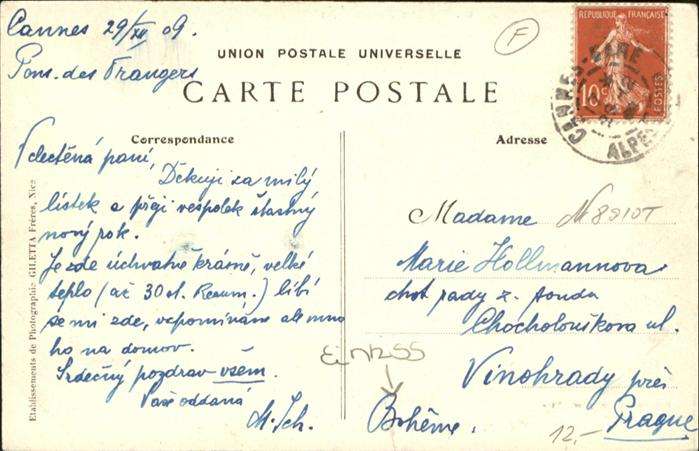 Cannes 29/XII 09.
Pens. des Etrangers
UNION POSTALE UNIVERSELLE
CARTE POSTALE
F
REPUBLIQUE FRANÇAISE
10c
CANNES-GARE
ALPES
Correspondance
Adresse
Velectěná paní,
Děkuji za milý
lístek a přeji vespolek šťastný
nový rok.
Je zde úchvatně krásně, velké
teplo (až 30 st. Reaum.) líbí
se mi zde, vzpomínáme ale mno
ho na domov.
Srdečný pozdrav všem.
Vaše oddaná
M. Sch.
Etablissements de Photographie GILETTA Frères, Nice
Madame
Marie Hollmannova
chot rady z. soudu
Chocholouškova ul.
Vinohrady près
Prague
Bohême.
12,-